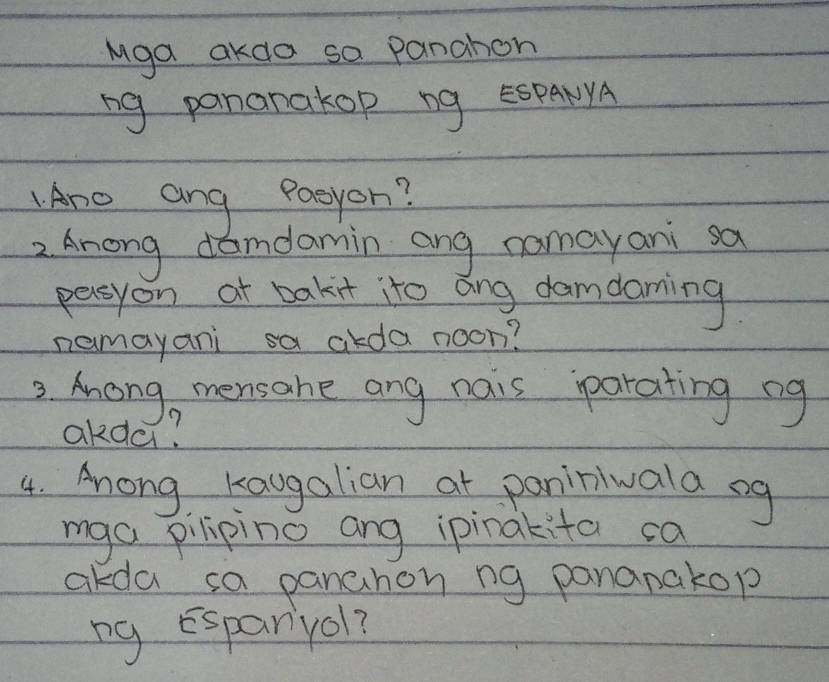 Mga akda sa Panahon
ng pananakop ng ESPANYA
1. Ano ang Pasyon?
2. Anong damdamin ang namayani sa
pasyon at bakit ito ang damdaming
namayani sa akda noon?
3. Anong mensahe ang nais iparating ng
akda?
4. Anong kaugalian at paniniwala ng
mga pilipino ang ipinakita sa
akda sa panahon ng pananakop
ng Espanyol?